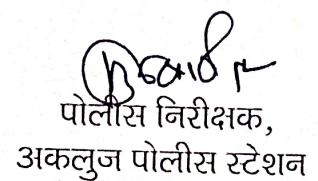 पोलीस निरीक्षक,
अकलुज पोलीस स्टेशन